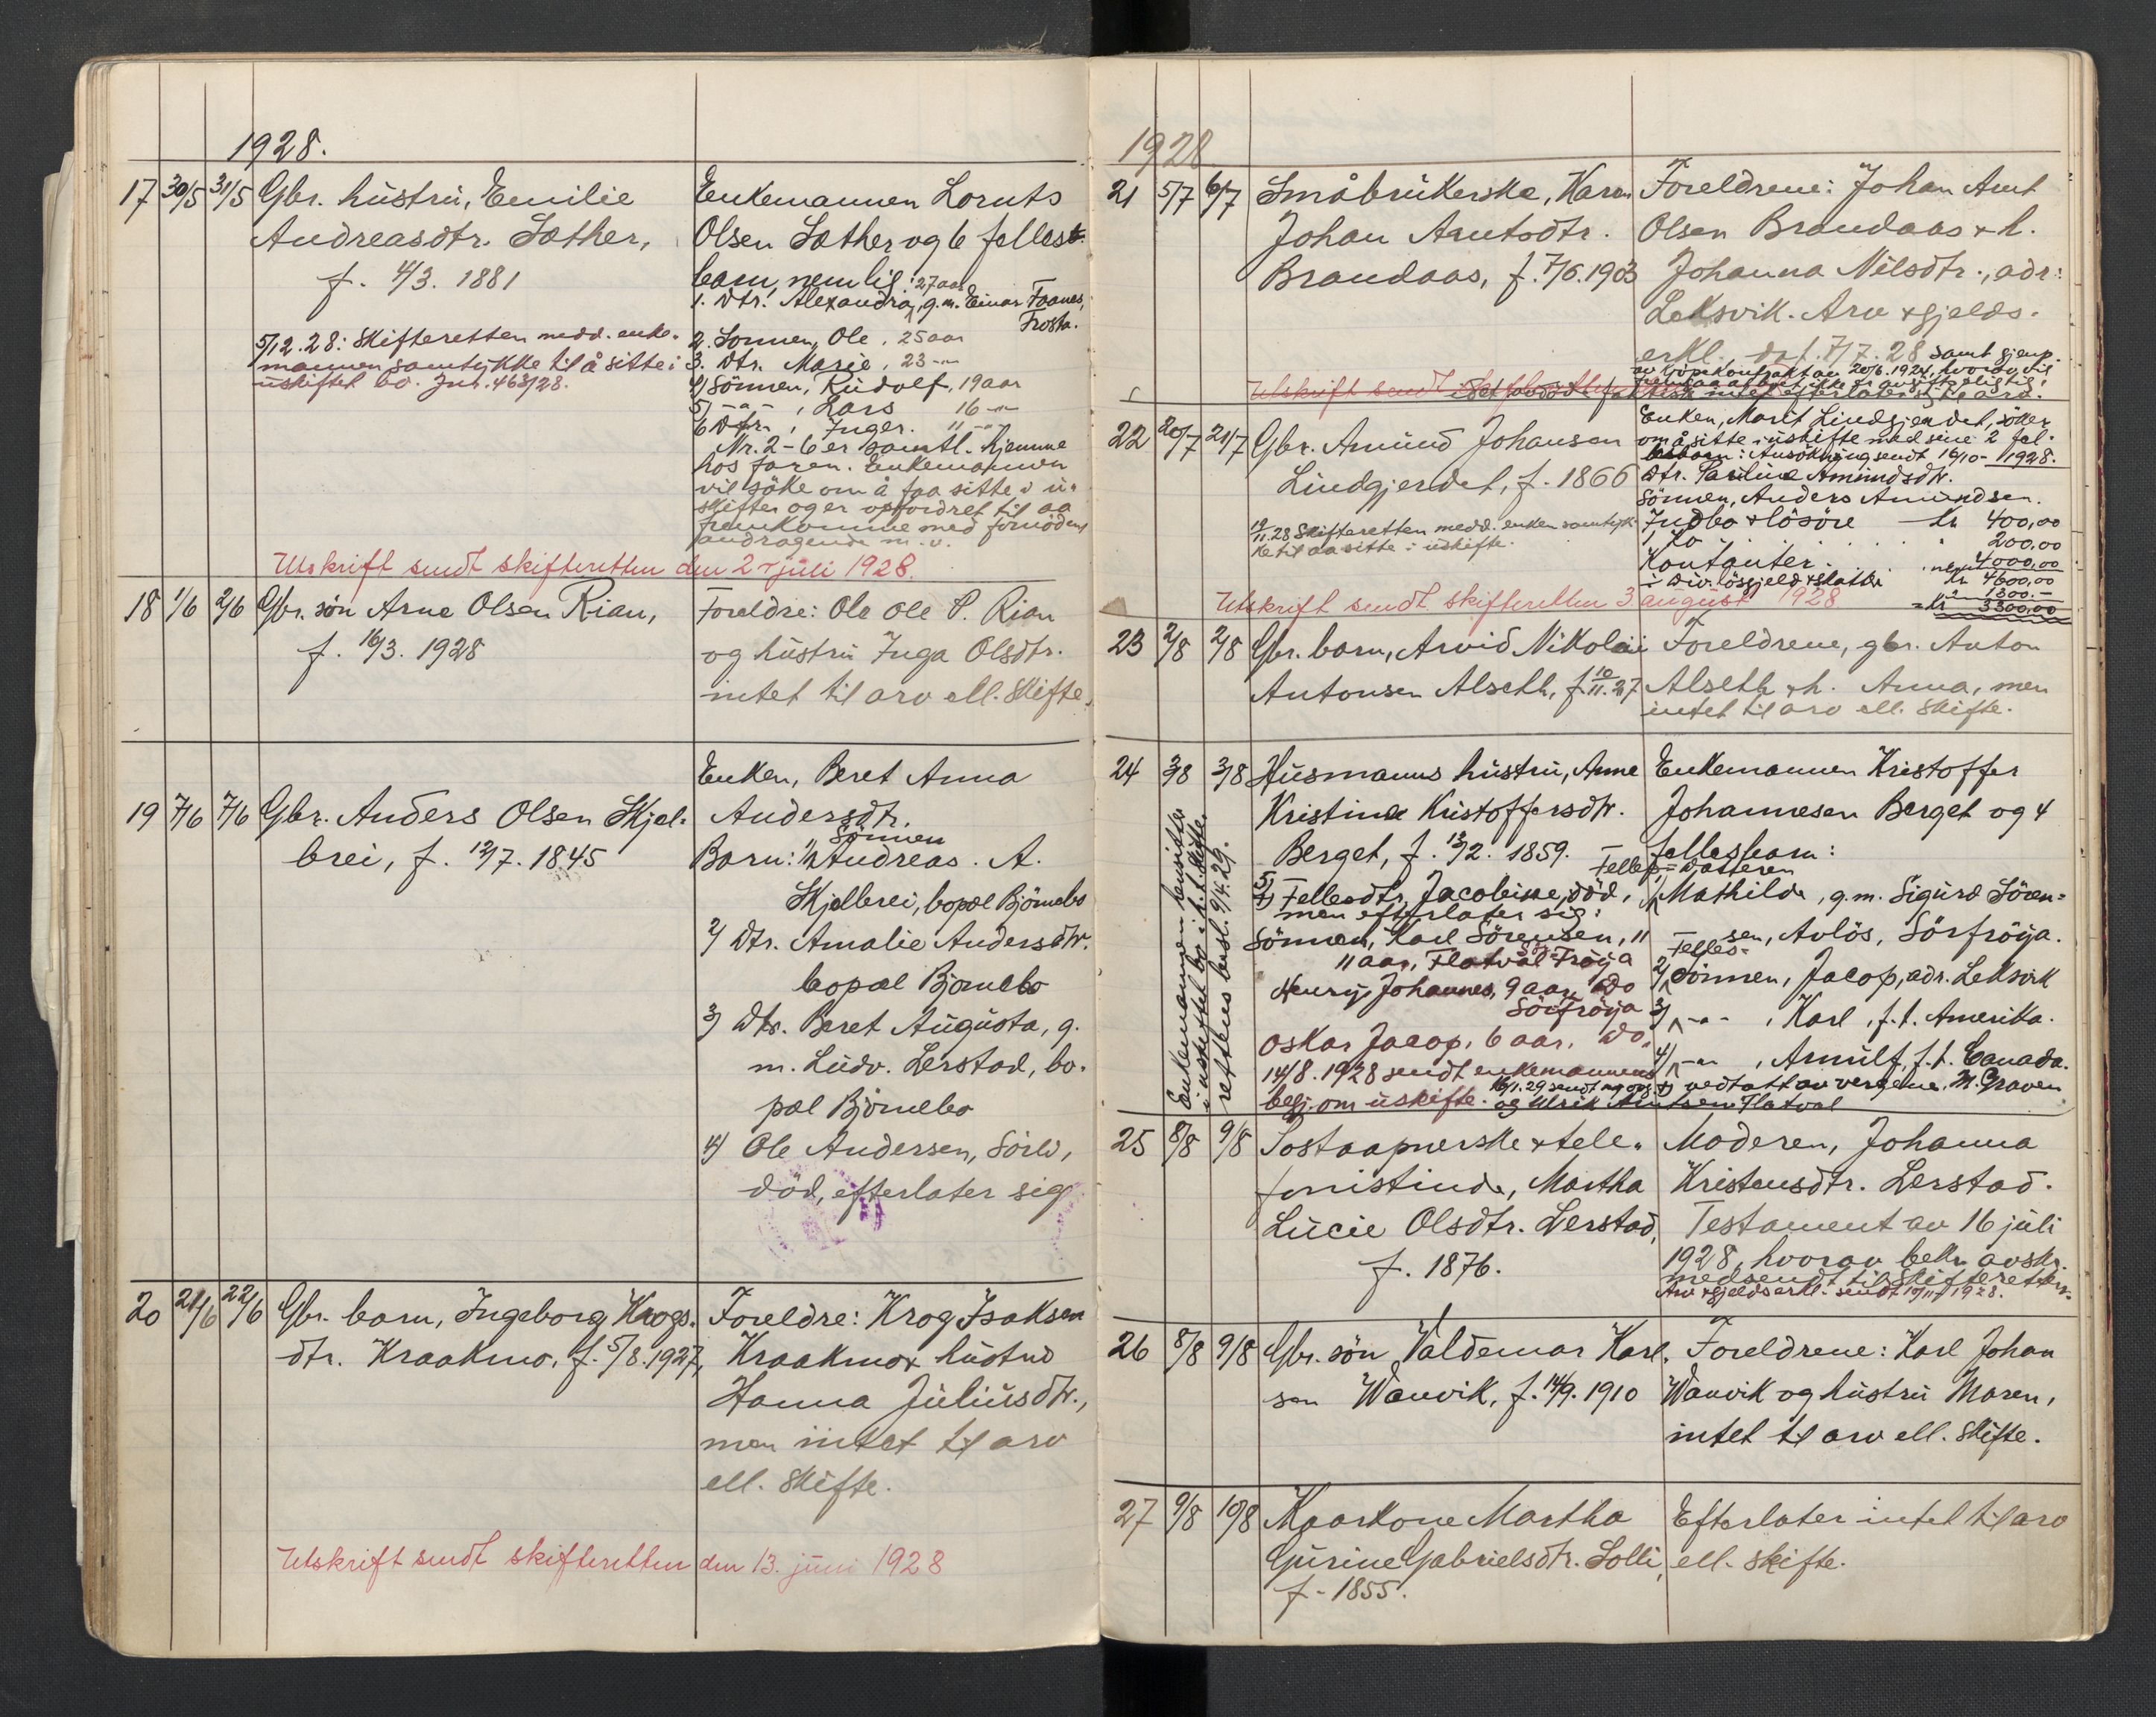 1928.
17 30/5 31/5 Gbr. hustru, Emilie
Andreasdtr. Sæther,
f. 4/3. 1881
5/12.28: Skifteretten medd. enke-
mannen samtykke til å sitte i
uskiftet bo. Jnr. 463/28.
Enkemannen Lornts
Olsen Sæther og 6 felles
barn, nemlig: 27 aar
1. Dtr. Alexandra, g.m. Einar Faanes,
Frosta.
2. Sønnen, Ole, 25 aar
3. Dtr. Marie, 23 -"-
4) Sönnen, Rudolf, 19 aar
5) -"- , Lars 16 -"-
6 Dtr. , Inger. 11 -"-
Nr. 2-6 er samtl. hjemme
hos faren. Enkemannen
vil söke om å faa sitte i u-
skifte og er opfordret til aa
fremkomme med fornöden
andragende m.v.
Utskrift sendt skifteretten den 2 juli 1928.
18 1/6 2/6 Gbr. sön Arne Olsen Rian,
f. 16/3. 1928
Foreldre: Ole Ole P. Rian
og hustru Inga Olsdtr.
intet til arv ell. skifte.
19 7/6 7/6 Gbr. Anders Olsen Skjel-
brei, f. 12/7. 1845
Enken, Beret Anna
Andersdtr.
Sönnen
Barn: 1/ Andreas. A.
Skjelbrei, bopæl Björnebo
2/ Dtr. Amalie Andersdtr.
bopæl Björnebo
3) Dtr. Beret Augusta, g.
m. Ludv. Lerstad, bo-
pæl Björnebo
4) Ole Andersen, Sörli,
död, efterlater sig
20 21/6 22/6 Gbr. barn, Ingeborg Krogs-
dtr. Kraakmo, f. 5/8.1927,
Foreldre: Krog Isaksen
Kraakmo & hustru
Hanna Juliusdtr.,
men intet til arv
ell. skifte.
Utskrift sendt skifteretten den 13. juni 1928
1928
21 5/7 6/7 Småbrukerske, Karen
Johan Arntsdtr.
Brandaas, f. 7/6.1903
Foreldrene: Johan Arnt
Olsen Brandaas & h.
Johanna Nilsdtr., adr:
Leksvik. Arv & gjelds-
erkl. dat. 7/7.28 samt gjenp.
av kjöpekontrakt av 20/6.1924, hvorav vil
Utskrift sendt
22 20/7 21/7 Gbr. Amund Johansen
Lindgjerdet, f. 1866
19/11.28 Skifteretten medd. enken samtyk-
ke til aa sitte i uskifte.
Enken, Marit Lindgjerdet, söker
om å sitte i uskifte med sine 2 fel-
lesbarn: Ansökning sendt 16/10-1928.
Dtr. Pauline Amundsdtr.
Sönnen, Anders Amundsen.
Indbo & lösöre kr 400,00
1 ko . . . " 200,00
Kontanter . . . " 4000,00
kr 4600,00
÷ Div. lösgjeld & skatter " 1300.-
= kr 3300,00
Utskrift sendt skifteretten 3 august 1928
23 2/8 2/8 Gbr. barn, Arvid Nikolai
Antonsen Alseth, f. 10/11.27
Foreldrene, gbr. Anton
Alseth & h. Anna, men
intet til arv ell. skifte.
24 3/8 3/8 Husmanns hustru, Anne
Kristine Kristoffersdtr.
Berget, f. 13/2. 1859.
5) Fellesdtr. Jacobine, död,
men efterlater sig:
Sönnen, Karl Sörensen, 11
11 aar, Flatval Fröja
Henry Johannes, 9 aar, Do
Sörfröja
Oskar Jacop, 6 aar, Do.
14/8.1928 sendt enkemannens
begj. om uskifte.
Enkemannen hensitter
i uskiftet bo i.h.t. skifte-
rettens besl. 9/4.29.
Enkemannen Kristoffer
Johannesen Berget og 4
fellesbarn:
Felles-Datteren
1/ Mathilde, g.m. Sigurd Sören-
sen, Avlös, Sörfröja.
Felles-
2/ Sönnen, Jacop, adr. Leksvik
3/ -"- , Karl, f.t. Amerika.
4/ -"- , Arnulf, f.t. Canada.
16/1.29 sendt vedtatt av vergene, M. Graven
og Ulrik Arntsen Flatval
25 8/8 9/8 Postaapnerske & tele-
fonistinde, Martha
Lucie Olsdtr. Lerstad,
f. 1876.
Moderen, Johanna
Kristensdtr. Lerstad.
Testament av 16 juli
1928, hvorav bekr. avskr.
medsendt til skifteretten.
Arv & gjeldserkl. sendt 10/11 1928.
26 8/8 9/8 Gbr. sön Valdemar Karl-
sen Wanvik, f. 14/9. 1910
Foreldrene: Karl Johan
Wanvik og hustru Maren,
intet til arv ell. skifte.
27 9/8 10/8 Kaarkone Martha
Gurine Gabrielsdtr. Solli,
f. 1855.
Efterlater intet til arv
ell. skifte.